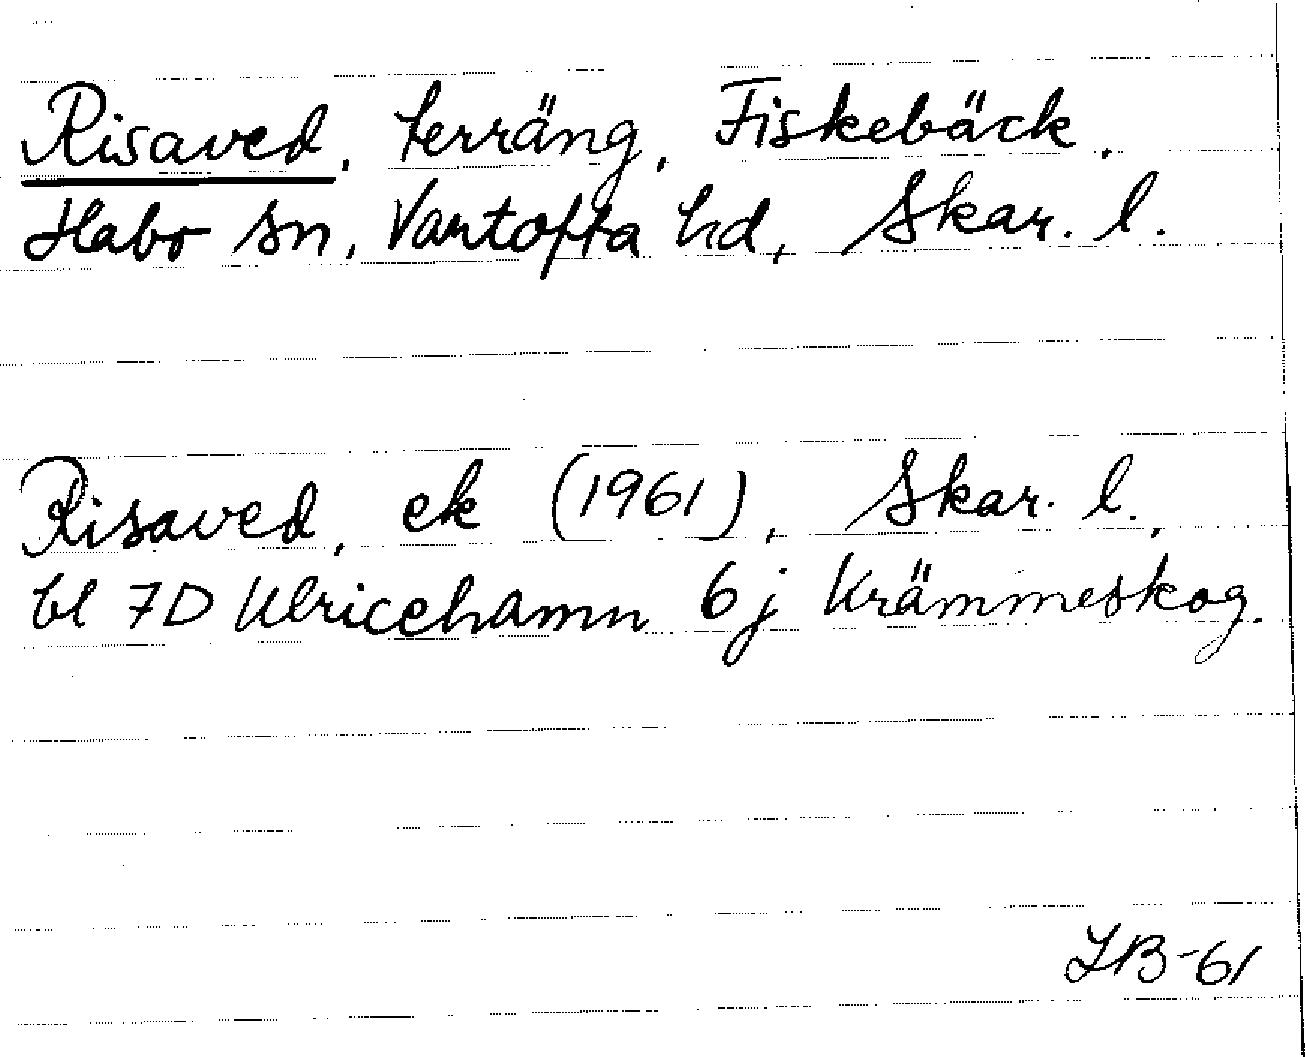 Risaved, terräng, Fiskebäck,
Habo sn, Vartofta hd, Skar. l.
Risaved, ek (1961), Skar. l.,
bl 7D Ulricehamn 6j Krämmeskog.
LB-61